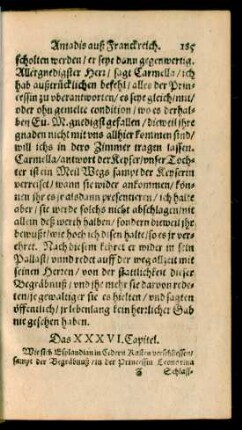 Amadis auß Franckreich. 185
scholten werden / er seye dann gegenwertig.
Allergnedigster Herr / sagt Carmella / ich
hab außtrücklichen befehl / alles der Prin-
cessin zu vberantworten / es seye gleich / mit /
oder ohn gemelte condition / wo es derhal-
ben Eu. M. gnedigst gefallen / dieweil ihre
gnaden nicht mit vns allhier kommen sind /
will ichs in dero Zimmer tragen lassen.
Carmella / antwort der Keyser / vnser Toch-
ter ist ein Meil Wegs sampt der Keyserin
verreiset / wann sie wider ankommen / kön-
nen ihr es jr alsdann presentieren / ich halte
aber / sie werde solchs nicht abschlagen / mit
allein deß werth halben / sondern dieweil ihr
bewußt / wie hoch ich disen halte / so es jr ver-
ehret. Nach diesem kehret er wider in sein
Pallast / vnnd redet auff der weg allzeit mit
seinen Herren / von der stattlichkeit dieser
Begräbnuß / vnd ihe mehr sie darvon rede-
ten / je gewaltiger sie es hielten / vnd sagten
öffentlich / jr lebenlang kein herrlicher Gab
nie gesehen haben.
Das XXXVI. Capitel.
Wie sich Esplandian in Cedern Kasten verschliessen /
sampt der Begräbnuß / in der Princessin Leonorina
Schlaff-